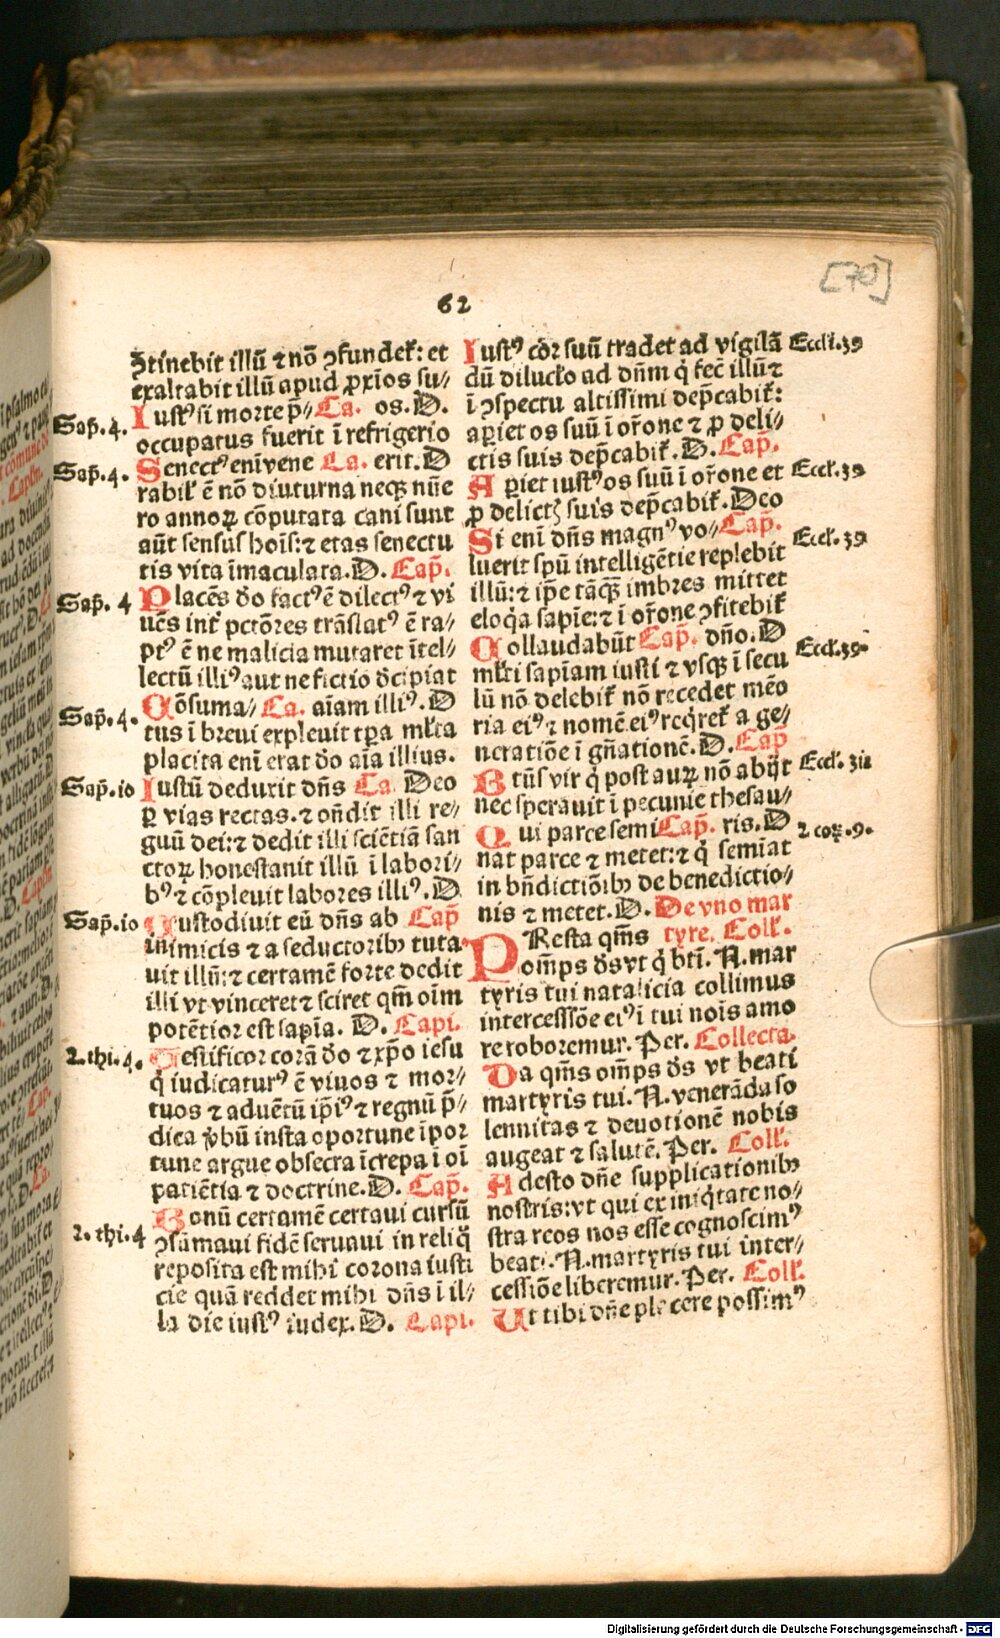 [70]
62
ꝯtinebit illū ⁊ nō ꝯfundet᷒: et
exaltabit illū apud ꝓxīos su⸗
Iustꝰ si morte p̄⸗ Ca. os. D.
Sap̄. 4.
occupatus fuerit ī refrigerio
Senectꝰ enī vene Ca. erit. D
Sap̄. 4.
rabil᷒ ē nō diuturna neqꝫ nūe
ro annoꝝ cōputata cani sunt
aūt sensus hoīs: ⁊ etas senectu
tis vita īmaculata. D. Cap̄.
Placēs do factꝰ ē dilectꝰ ⁊ vi
Sap̄. 4
uēs int̄ pctōres trāslatꝰ ē ra⸗
ptꝰ ē ne malicia mutaret ītel⸗
lectū illiꝰ aut ne fictio dcipiat
Cōsuma⸗ Ca. aīam illiꝰ. D
Sap̄. 4.
tus ī breui expleuit tp̄a ml̄ta
placita enī erat do aīa illius.
Iustū deduxit dn̄s Ca Deo
Sap̄. io
ꝑ vias rectas. ⁊ on̄dit illi re⸗
gnū dei: ⁊ dedit illi sciētiā san
ctoꝝ honestauit illū ī labori⸗
bꝰ ⁊ cōpleuit labores illiꝰ. D
Custodiuit eū dn̄s ab Cap̄
Sap̄. io
inimicis ⁊ a seductoribꝫ tuta⸗
uit illū: ⁊ certamē forte dedit
illi vt vinceret ⁊ sciret qm̄ oīm
potētior est sapīa. D. Capi.
Testificor corā do ⁊ xp̄o iesu
2. thi. 4.
q̄ iudicaturꝰ ē viuos ⁊ mor⸗
tuos ⁊ aduētū ip̄iꝰ ⁊ regnū p̄⸗
dica v̄bū insta oportune īpor
tune argue obsecra īcrepa ī oī
patiētia ⁊ doctrine. D. Cap̄.
Bonū certamē certaui cursū
2. thi. 4
ꝯsūmaui fidē seruaui in reliq̄
reposita est mihi corona iusti
cie quā reddet mihi dn̄s ī il⸗
la die iustꝰ iudex. D. Capi.
Iustꝰ cōr suū tradet ad vigilā
Eccli. 39
dū diluclo ad dn̄m q̄ fec̄ illū ⁊
ī ꝯspectu altissimi dep̄cabit᷒:
apiet os suū ī or̄one ⁊ ꝓ deli⸗
ctis suis dep̄cabit᷒. D. Cap̄.
Apiet iustꝰ os suū ī or̄one et
Eccl᷒. 39
ꝓ delictꝫ suis dep̄cabit᷒. Deo
Si enī dn̄s magnꝰ vo⸗ Cap̄.
Eccl᷒. 39
luerit spū intelligētie replebit
illū: ⁊ ip̄e tāqꝫ imbres mittet
eloq̄a sapīe: ⁊ ī or̄one ꝯfitebit᷒
Collaudabūt Cap̄. dn̄o. D
Eccl᷒. 39.
ml̄ti sapīam iusti ⁊ vsqꝫ ī secu
lū nō delebit᷒ nō recedet mēo
ria eiꝰ ⁊ nomē eiꝰ req̄ret᷒ a ge⸗
neratiōe ī gn̄ationē. D. Cap̄
Btūs vir q̄ post auꝝ nō abijt
Eccl᷒. 3ii
nec sperauit ī pecunie thesau⸗
Qui parce semi Cap̄. ris. D
2 coꝝ. 9.
nat parce ⁊ metet: ⁊ q̄ semīat
in bn̄dictiōibꝫ de benedictio⸗
nis ⁊ metet. D. De vno mar
PResta qm̄s tyre. Coll᷒.
om̄ps ds vt q̄ btī. N. mar
tyris tui natalicia collimus
intercessiōe eiꝰ ī tui noīs amo
re roboremur. Per. Collecta.
Da qm̄s om̄ps ds vt beati
martyris tui. N. venerāda so
lennitas ⁊ deuotionē nobis
augeat ⁊ salutē. Per. Coll᷒.
Adesto dn̄e supplicationibꝫ
nostris: vt qui ex iniq̄tate no⸗
stra reos nos esse cognoscimꝰ
beati. N. martyris tui inter⸗
cessiōe liberemur. Per. Coll᷒.
Ut tibi dn̄e placere possimꝰ
Digitalisierung gefördert durch die Deutsche Forschungsgemeinschaft - DFG